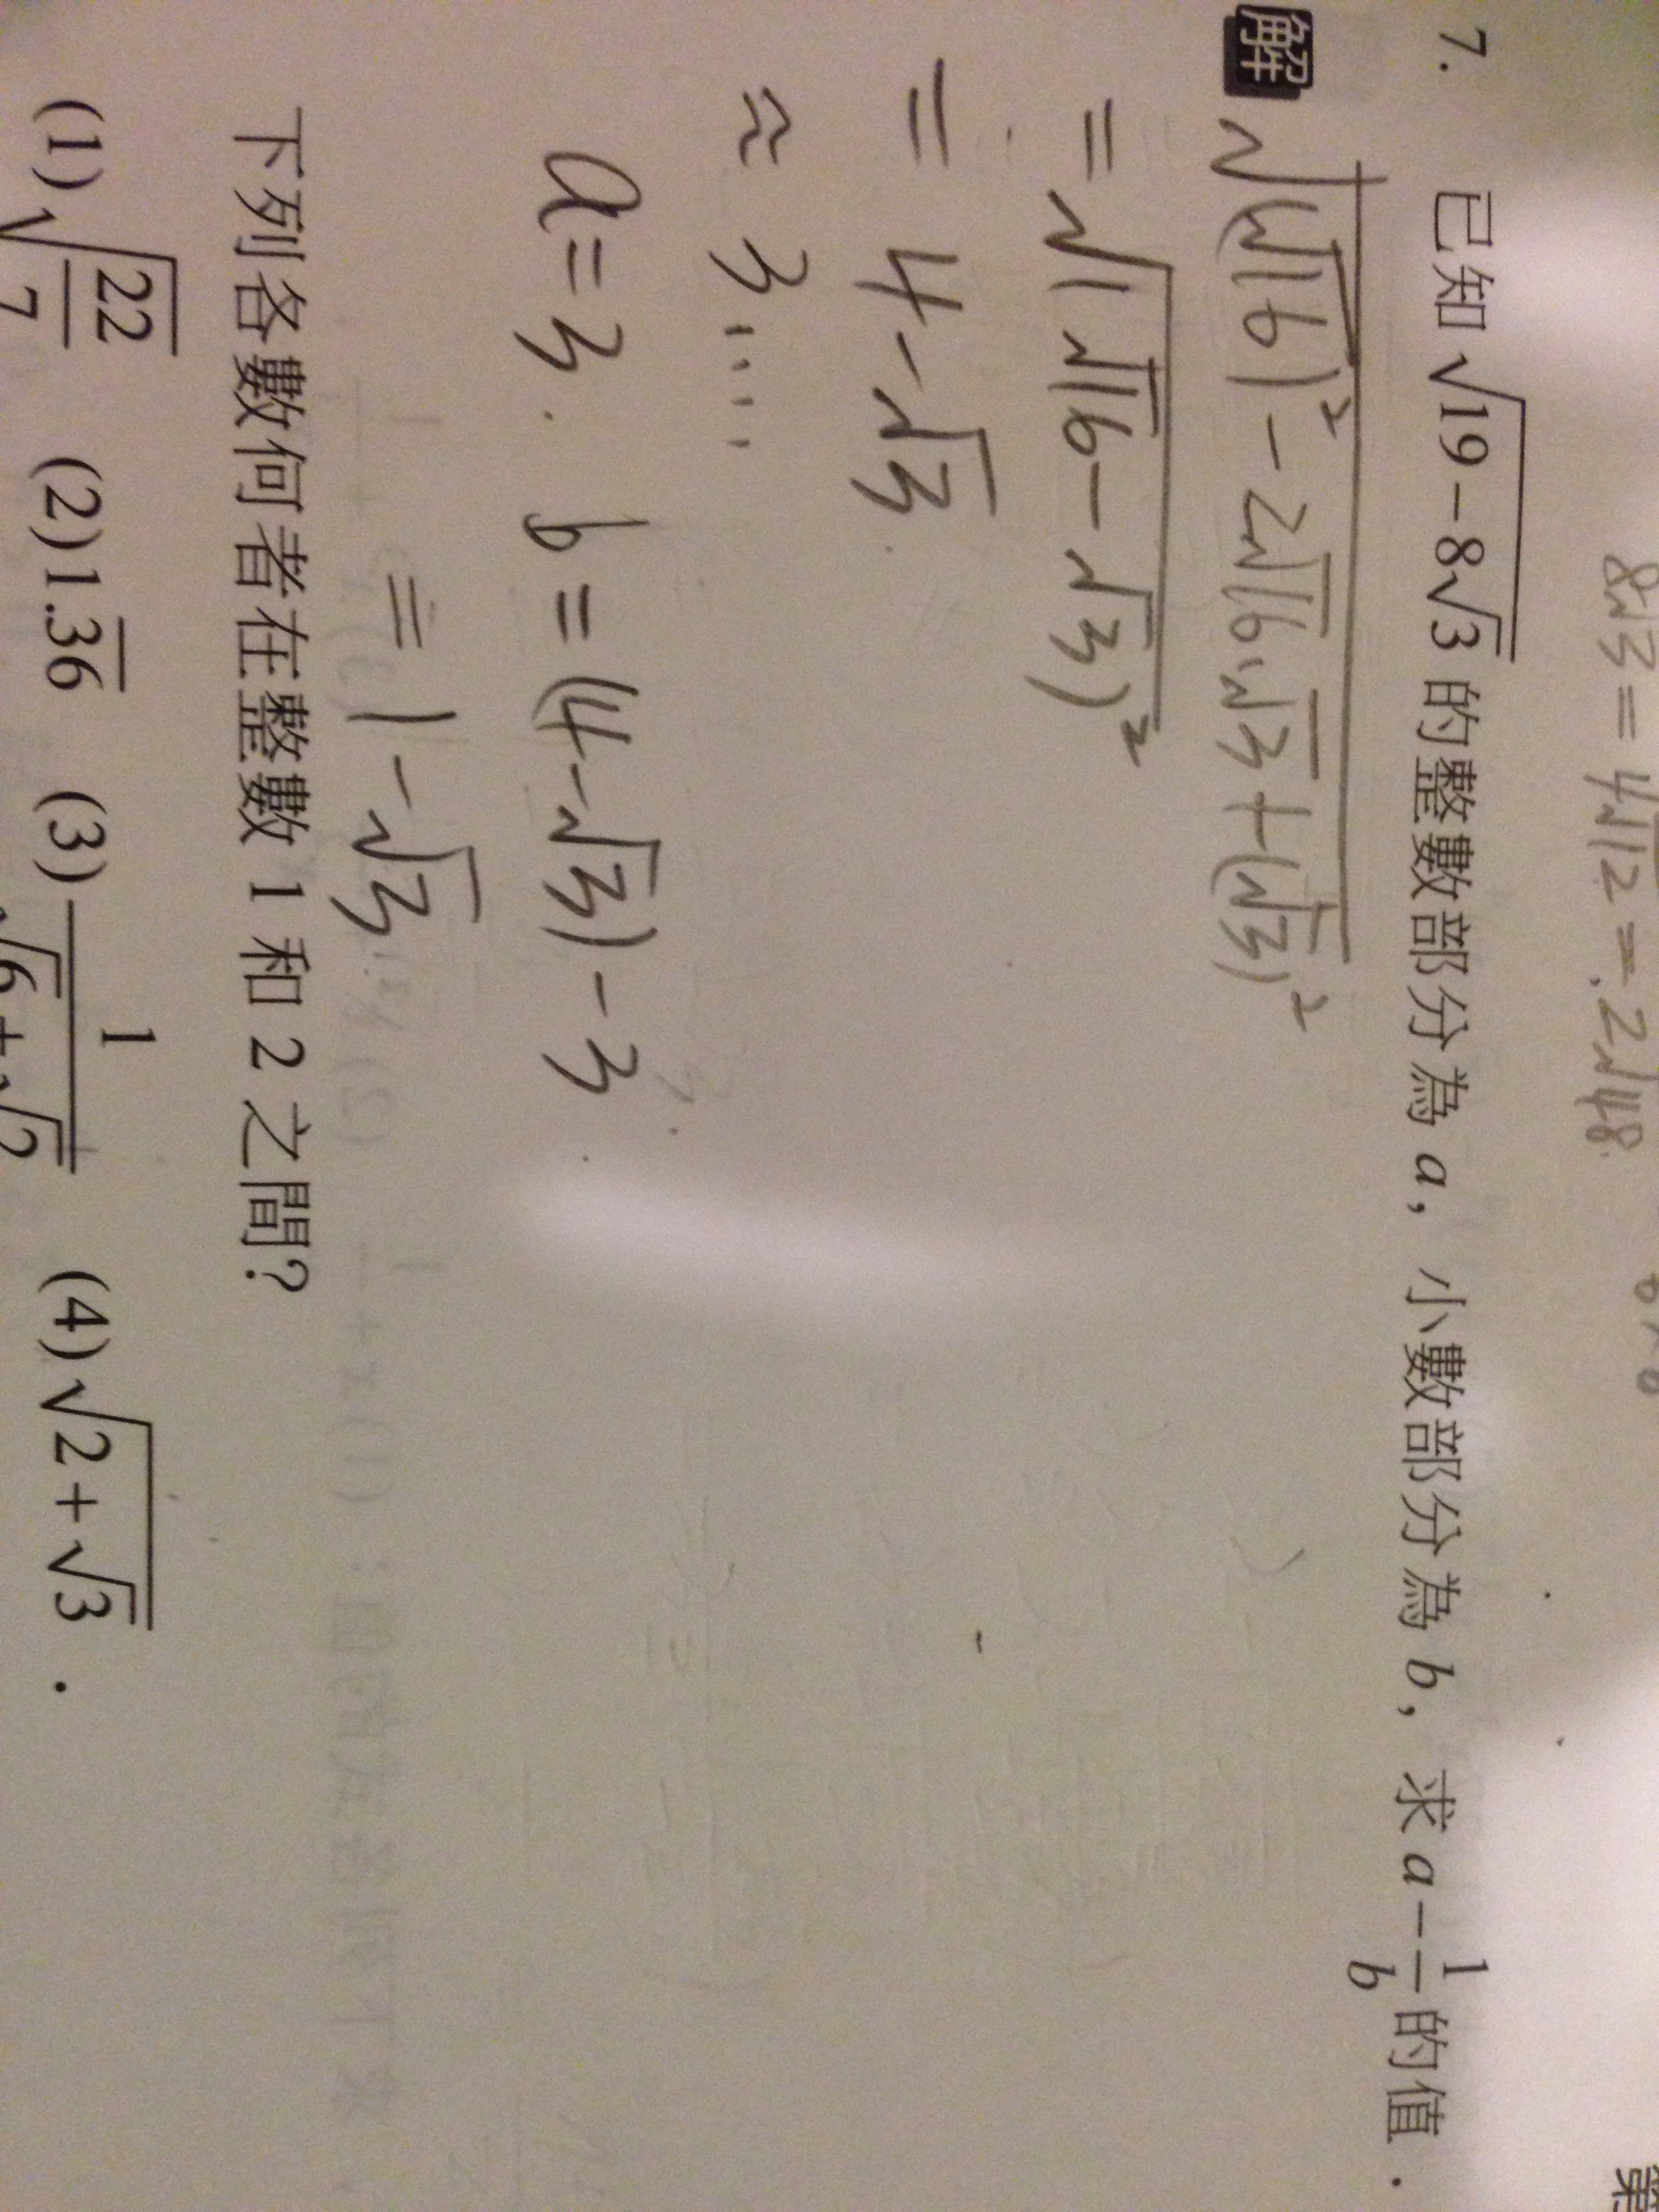 8√3 = 4√12 = 2√48
7. 已知 √(19-8√3) 的整數部分為 a, 小數部分為 b, 求 a-1/b 的值.
解 √((√16)²-2√16·√3+(√3)²)
= √(√16-√3)²
= 4-√3
≈ 3....
a=3. b=(4-√3)-3
= 1-√3
下列各數何者在整數 1 和 2 之間?
(1)√(22/7) (2)1.3̅6̅ (3) 1/(√6+√2) (4)√(2+√3) .